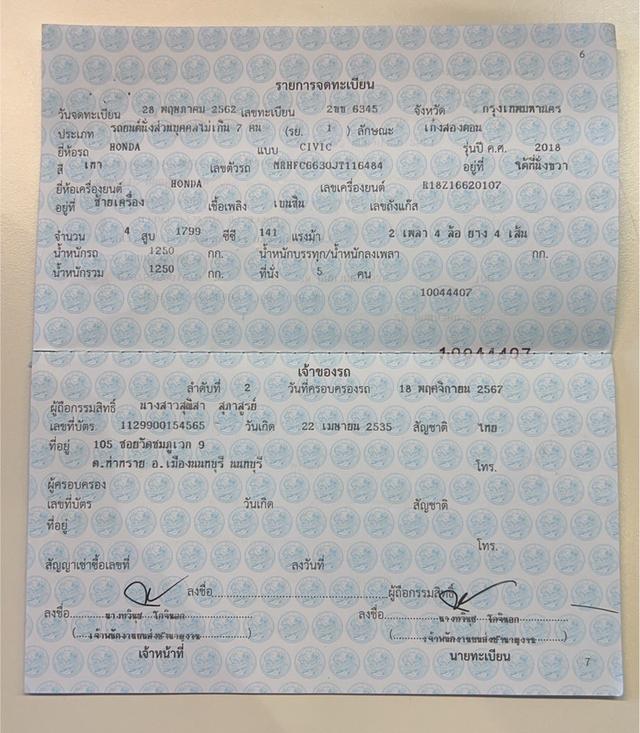 6
รายการจดทะเบียน
วันจดทะเบียน 28 พฤษภาคม 2562 เลขทะเบียน 2ขช 6345 จังหวัด กรุงเทพมหานคร
ประเภท รถยนต์นั่งส่วนบุคคลไม่เกิน 7 คน (รย. 1 ) ลักษณะ เก๋งสองตอน
ยี่ห้อรถ HONDA แบบ CIVIC รุ่นปี ค.ศ. 2018
สี เทา เลขตัวรถ MRHFC6630JT116484 อยู่ที่ ใต้ที่นั่งขวา
ยี่ห้อเครื่องยนต์ HONDA เลขเครื่องยนต์ R18Z16620107
อยู่ที่ ซ้ายเครื่อง เชื้อเพลิง เบนซิน เลขถังแก๊ส
จำนวน 4 สูบ 1799 ซีซี 141 แรงม้า 2 เพลา 4 ล้อ ยาง 4 เส้น
น้ำหนักรถ 1250 กก. น้ำหนักบรรทุก/น้ำหนักลงเพลา กก.
น้ำหนักรวม 1250 กก. ที่นั่ง 5 คน
10044407
10044407
เจ้าของรถ
ลำดับที่ 2 วันที่ครอบครองรถ 18 พฤศจิกายน 2567
ผู้ถือกรรมสิทธิ์ นางสาวสุณิสา สภาสูรย์
เลขที่บัตร 1129900154565 วันเกิด 22 เมษายน 2535 สัญชาติ ไทย
ที่อยู่ 105 ซอยวัดชมภูเวก 9
ต.ท่าทราย อ.เมืองนนทบุรี นนทบุรี โทร.
ผู้ครอบครอง
เลขที่บัตร วันเกิด สัญชาติ
ที่อยู่
โทร.
สัญญาเช่าซื้อเลขที่ ลงวันที่
ลงชื่อ ผู้ถือกรรมสิทธิ์
ลงชื่อ ลงชื่อ
เจ้าหน้าที่ นายทะเบียน
7